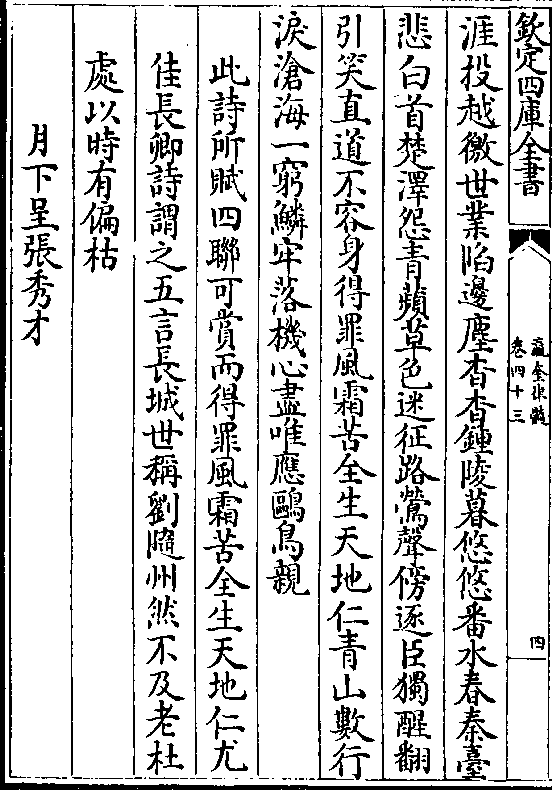 欽定四庫全書
瀛奎律髓
卷四十三
四
涯投越徼世業陷邊塵杳杳鍾陵暮悠悠番水春秦臺
悲白首楚澤怨青蘋草色迷征路鶯聲傍逐臣獨醒翻
引笑直道不容身得罪風霜苦全生天地仁青山數行
淚滄海一窮鱗牢落機心盡唯應鷗鳥親
此詩所賦四聯可賞而得罪風霜苦全生天地仁尤
佳長卿詩謂之五言長城世稱劉隨州然不及老杜
處以時有偏枯
月下呈張秀才